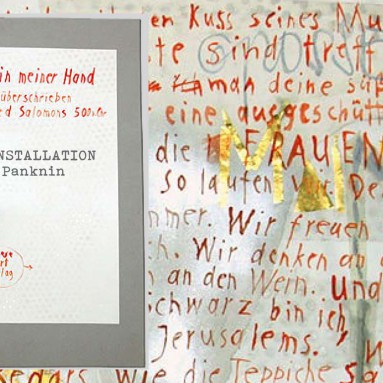 in meiner Hand
überschrieben
ed Salomons 500 v.Chr
NSTALLATION
Panknin
en Kuss seines Mu
te sind treff
man deine süß
eine ausgeschütt
die FRAUEN
Ma
So laufen wir. De
mmer. Wir freuen
h. Wir denken an d
an den Wein. und
schwarz bin ich,
Jerusalems.
wie die Teppiche Sa